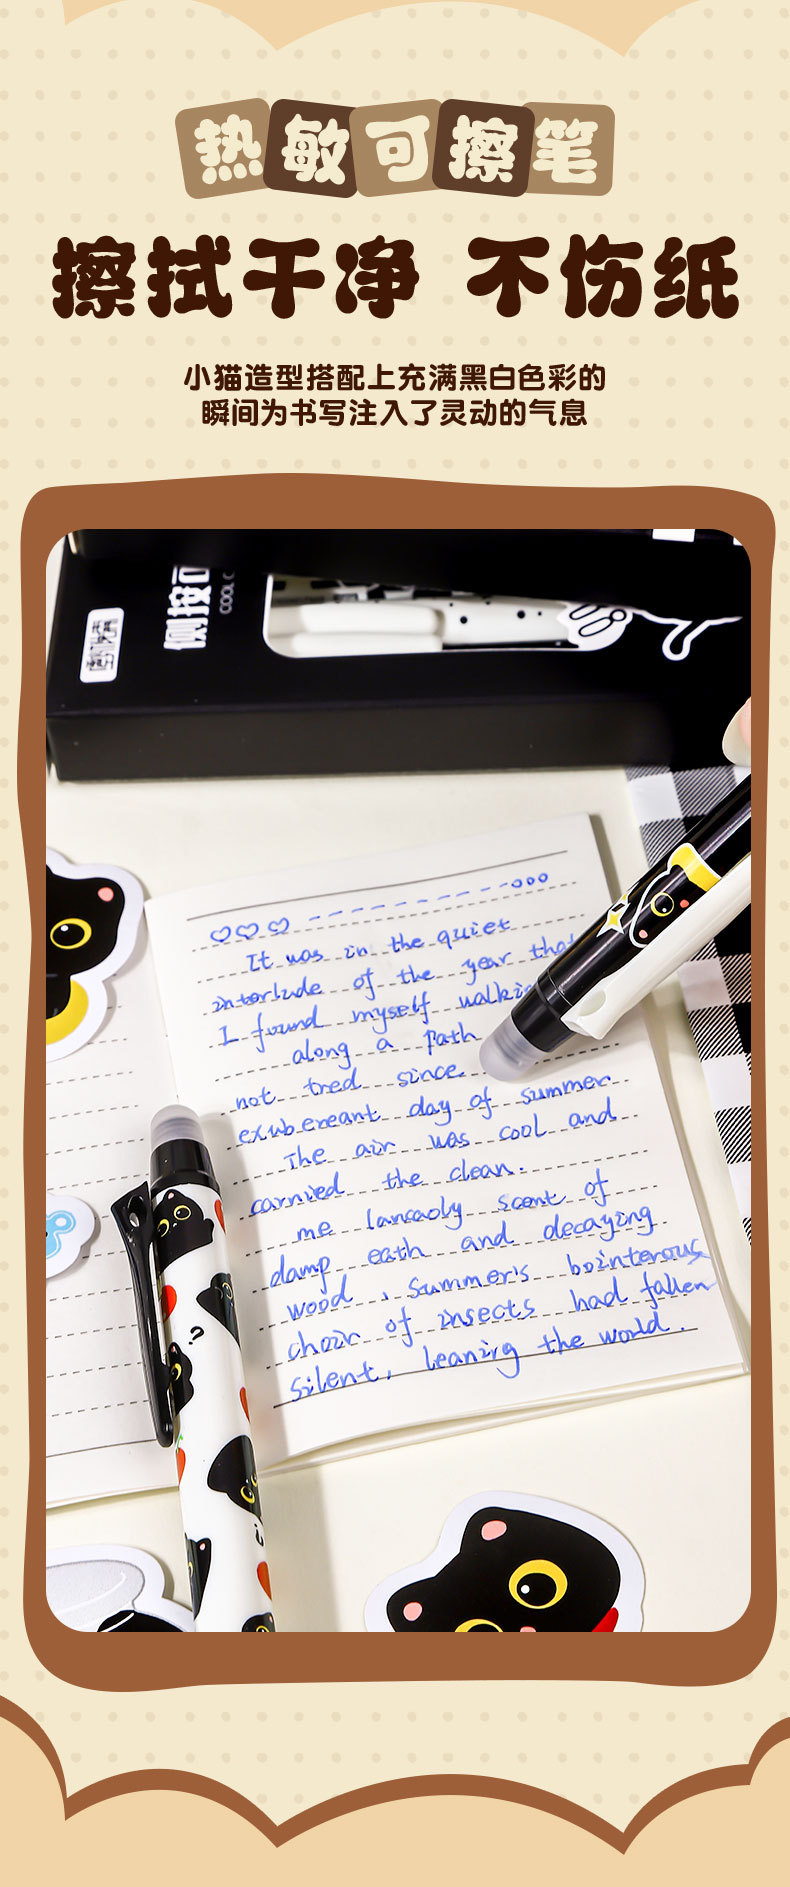 热敏可擦笔
擦拭干净 不伤纸
小猫造型搭配上充满黑白色彩的
瞬间为书写注入了灵动的气息
侧按可
COOL C
It was in the quiet
interlude of the year that
I found myself walkin
along a path
not tred since
exubereant day of summer
The air was cool and
carnied the clean.
me lancaoly scent of
damp eath and decaying
wood , summer's bointerous
choir of insects had fallen
silent, leaning the world.